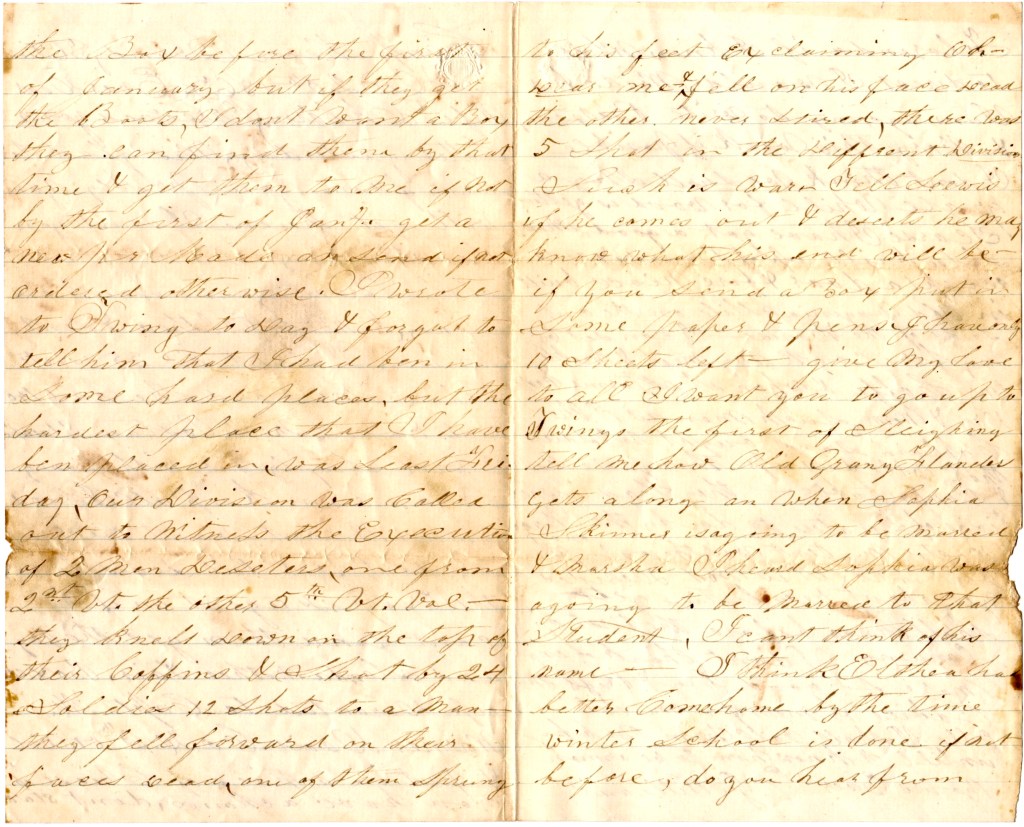 the Box before the first
of January, but if they get
the Boots, I dont want a Box
they can find them by that
time & get them to me if not
by the first of Jany. get a
new pr. Made an send if not
ordered otherwise. I wrote
to Twing to Day & forgot to
tell him that I had ben in
Some hard places, but the
hardest place that I have
ben placed in, was Last Fri-
day, Our Division was Called
out to Witness the Execution
of 2 Men Deseters, one from
2nd Vt. the other 5th Vt. Vol. —
they knelt Down on the top of
their Coffins & Shot by 24
Soldies 12 Shots to a Man —
they fell forward on their
faces Dead, one of them Sprung
to his feet Exclaiming Oh —
Dear me & fell on his face Dead
the other never Stired, there was
5 Shot in the Differnt Division
Such is War Tell Loewis
if he comes out & deserts he may
know what his end will be —
if you send a box put in
Some paper & pens I have only
10 Sheets left — give My Love
to all I want you to go up to
Twings the first of Sleighing
tell me how Old Grany Flander
gets along an when Sophia
Skinner is agoing to be Marred
& Marsha I heard Sophia was
agoing to be Marred to that
Student, I cant think of his
name — I think Elthea had
better Come home by the time
winter School is done if not
before, do you hear from